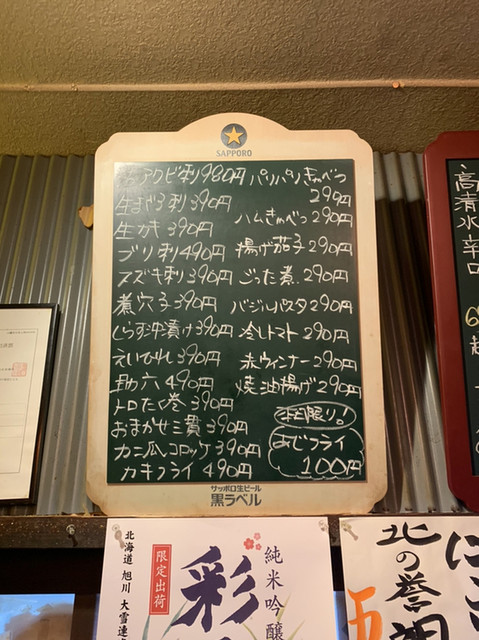 SAPPORO
アワビ刺 980円
生まぐろ刺 390円
生かき 390円
ブリ刺 490円
スズキ刺 390円
煮穴子 390円
しらす沖漬け 390円
えいひれ 390円
助六 490円
トロたく巻 390円
おまかせ三貫 390円
カニ爪コロッケ 390円
カキフライ 490円
パリパリきゃべつ
290円
ハムきゃべつ 290円
揚げ茄子 290円
ごった煮 290円
バジルパスタ 290円
冷しトマト 290円
赤ウィンナー 290円
焼油揚げ 290円
限り!
あじフライ
100円
サッポロ生ビール
黒ラベル
高清水 辛口
北海道 旭川 大雪連
限定出荷
彩
純米吟醸
北の誉